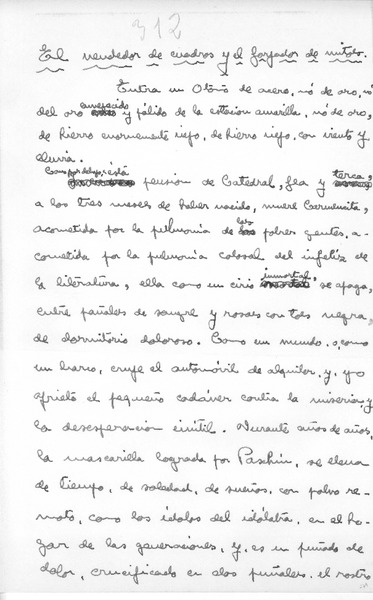 312
El vendedor de cuadros y el forjador de mitos.
Entra un Otoño de acero, nó de oro, nó
del oro envejecido y pálido de la estación amarilla, nó de oro,
de hierro enormemente viejo, de hierro viejo, con viento y
lluvia.
Como por debajo, está pensión de Catedral, fea y terca,
a los tres meses de haber nacido, muere Carmencita,
acometida por la pulmonía de las pobres gentes, a-
cometida por la pulmonía colosal del infeliz de
la literatura, ella como un cirio inmortal, se apaga,
entre pañales de sangre y rosas con tos negra,
de dormitorio doloroso. Como un mundo, o, como
un barco, cruje el automóvil de alquiler, y, yo
aprieto el pequeño cadáver contra la miseria, y
la desesperación inútil. Durante años de años,
la mascarilla lograda por Paschin, se llena
de tiempo, de soledad, de sueños, con polvo re-
moto, como los ídolos del idólatra, en el ho-
gar de las generaciones, y, es un puñado de
dolor, crucificado en dos puñales, el rostro